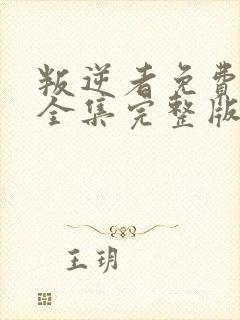 叛逆者免费
全集完整版
王玥